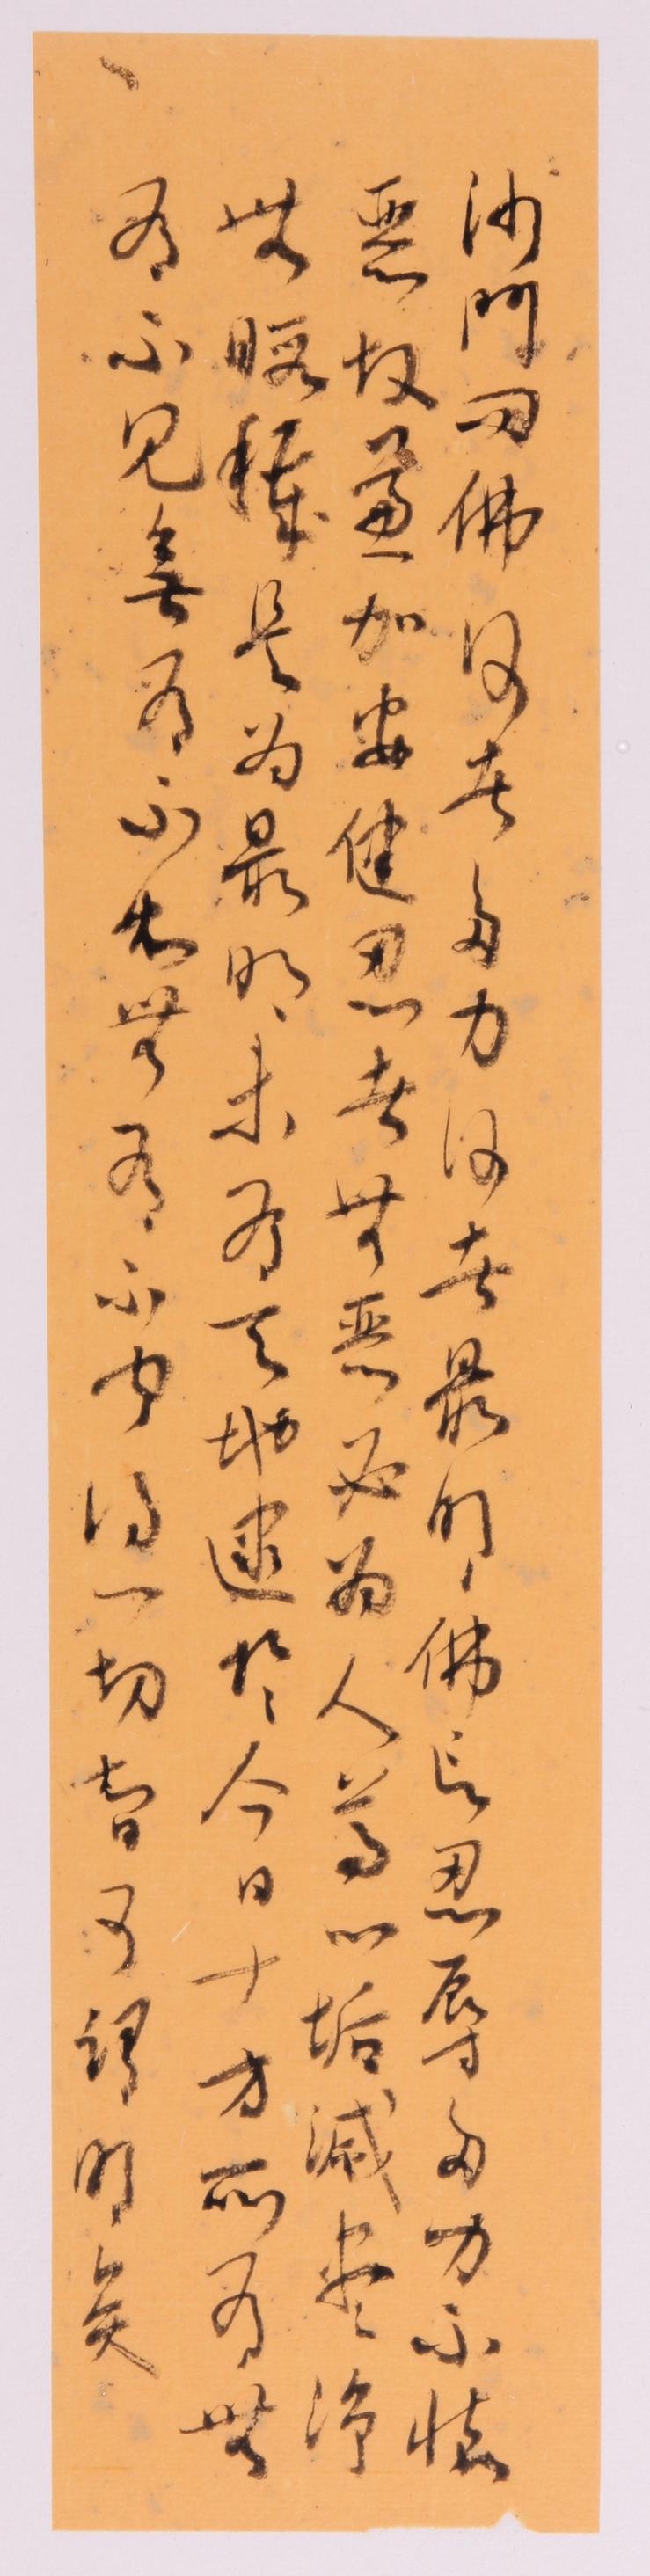 沙門問佛何者多力何者最明佛言忍辱多力不懷
惡故兼加安健忍者無惡必為人尊心垢滅盡淨
無瑕穢是為最明未有天地逮於今日十方所有無
有不見無有不知無有不聞得一切智可謂明矣